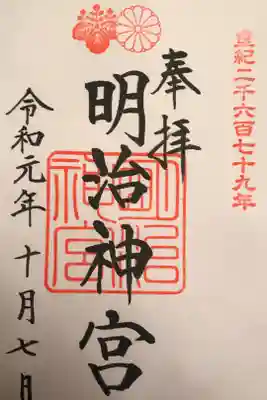 皇紀二千六百七十九年
奉拝
明治神宮
令和元年十月七日
明治神宮